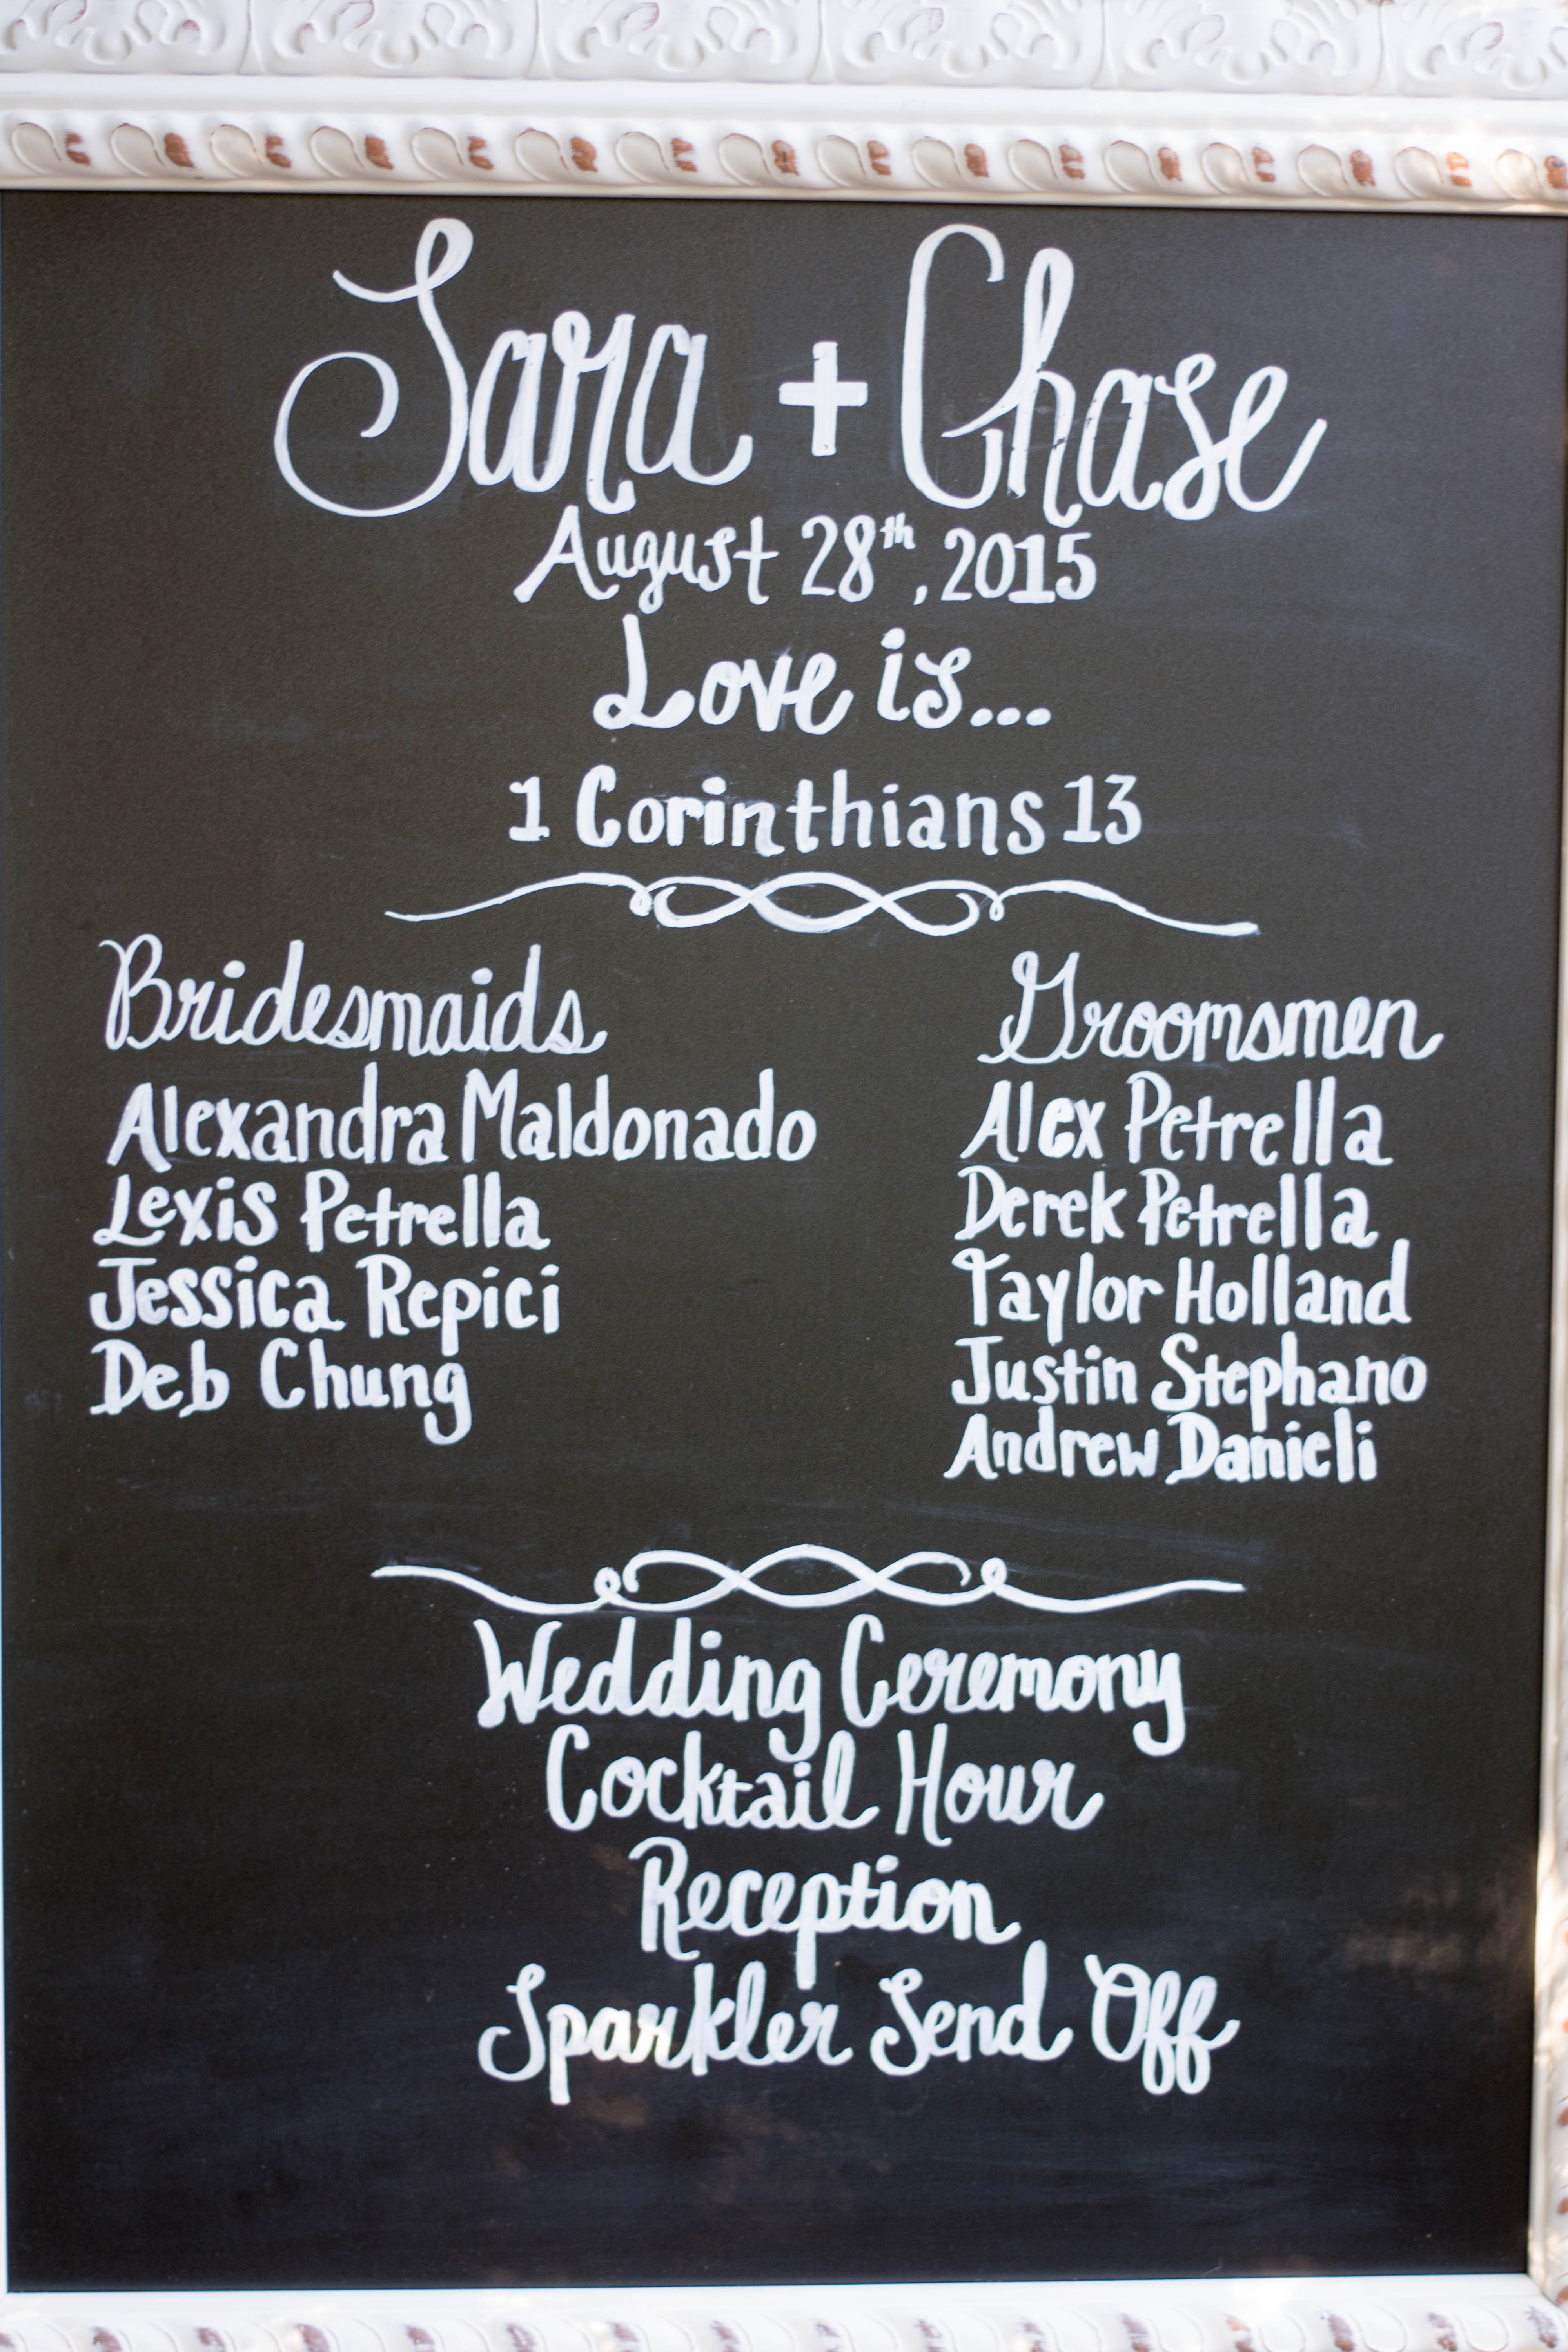 Sara + Chase
August 28th, 2015
Love is...
1 Corinthians 13
Bridesmaids
Alexandra Maldonado
Lexis Petrella
Jessica Repici
Deb Chung
Groomsmen
Alex Petrella
Derek Petrella
Taylor Holland
Justin Stephano
Andrew Danieli
Wedding Ceremony
Cocktail Hour
Reception
Sparkler Send Off